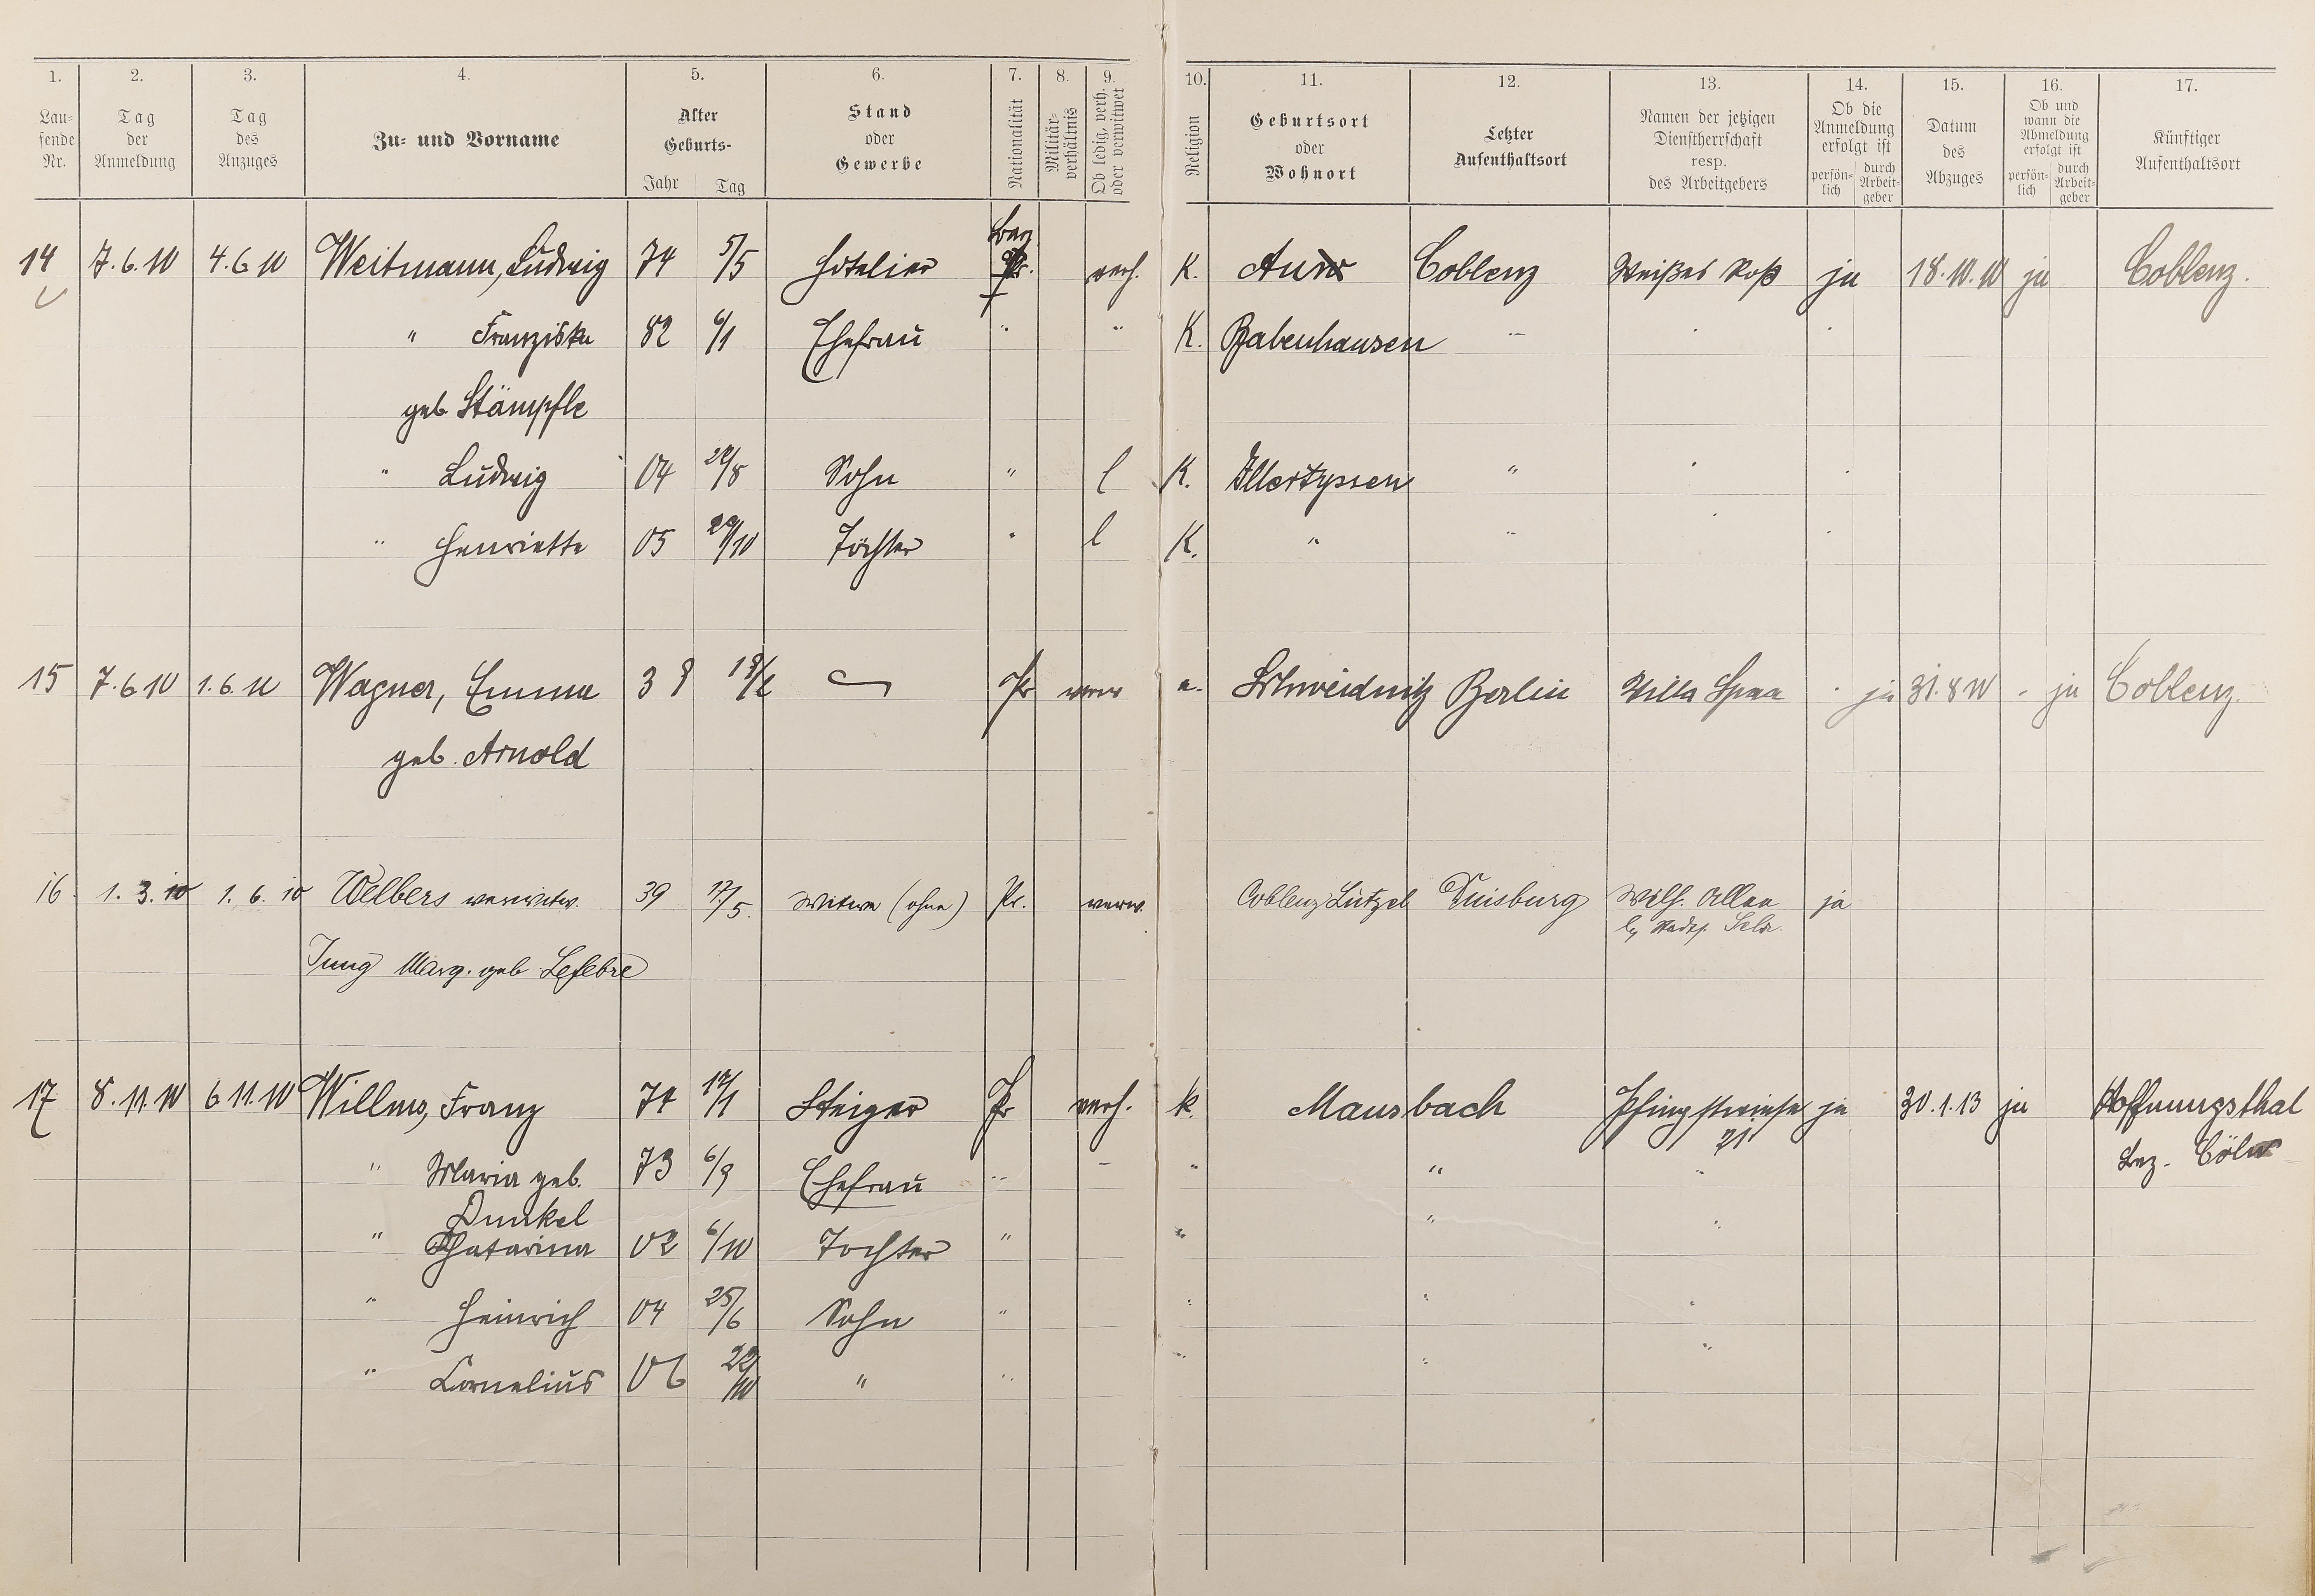 1. 2. 3. 4. 5. 6. 7. 8. 9. 10. 11. 12. 13. 14. 15. 16. 17.
Lau-
fende
Nr.
Tag
der
Anmeldung
Tag
des
Anzuges
Zu- und Vorname
Alter
Geburts-
Jahr Tag
Stand
oder
Gewerbe
Nationalität
Militär-
verhältnis
Ob ledig, verh.
oder verwitwet
Religion
Geburtsort
oder
Wohnort
Letzter
Aufenthaltsort
Namen der jetzigen
Dienstherrschaft
resp.
des Arbeitgebers
Ob die
Anmeldung
erfolgt ist
persön-
lich
durch
Arbeit-
geber
Datum
des
Abzuges
Ob und
wann die
Abmeldung
erfolgt ist
persön-
lich
durch
Arbeit-
geber
Künftiger
Aufenthaltsort
14 7.6.10 4.6.10 Weitmann, Ludwig 74 5/5 Hotelier verh. K. Coblenz Weißes Roß ja 18.10.10 ja Coblenz.
" Franziska 82 6/1 Ehefrau " " K. Babenhausen "
geb. Stämpfle
" Ludwig 04 /8 Sohn " l K. Illertyssen "
" Henriette 05 29/10 Tochter " l K. " "
15 7.6.10 1.6.10 Wagner, Emma 38 Pr verw e. Schweidnitz Berlin Villa Spaa - ja 31.8.10 - ja Coblenz.
geb. Arnold
16. 1.3.10 1.6.10 Welbers verwitw. 39 17/5. Witwe (ohne) Pr. verw. Coblenz Lützel Duisburg Wilh. Allee ja
Jung Marg. geb Lefebre
17 8.11.10 6.11.10 Willms, Franz 74 1 Steiger Pr verh. k. Mausbach Pfingstwiese ja 30.1.13 ja Hoffnungsthal
21
Bez. Cöln
" Maria geb. 73 6/9 Ehefrau " " " " "
Dunkel
" Chatarina 02 6/10 Tochter " " " "
" Heinrich 04 25/6 Sohn " " " "
" Cornelius 06 22/10 " " " " "